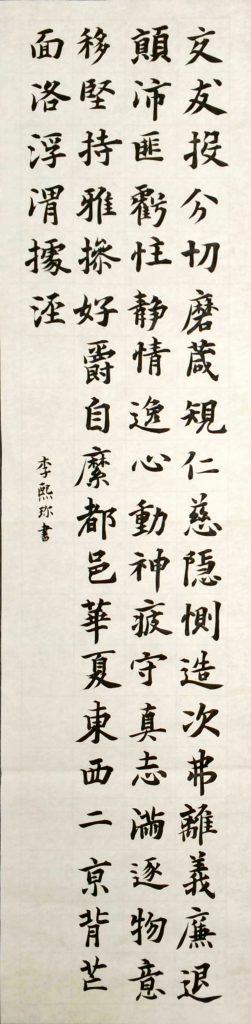 交友投分切磨葴規仁慈隱惻造次弗離義廉退
顛沛匪虧性静情逸心動神疲守真志滿逐物意
移堅持雅操好爵自縻都邑華夏東西二亰背芒
面洛浮渭據涇
李熙珎書